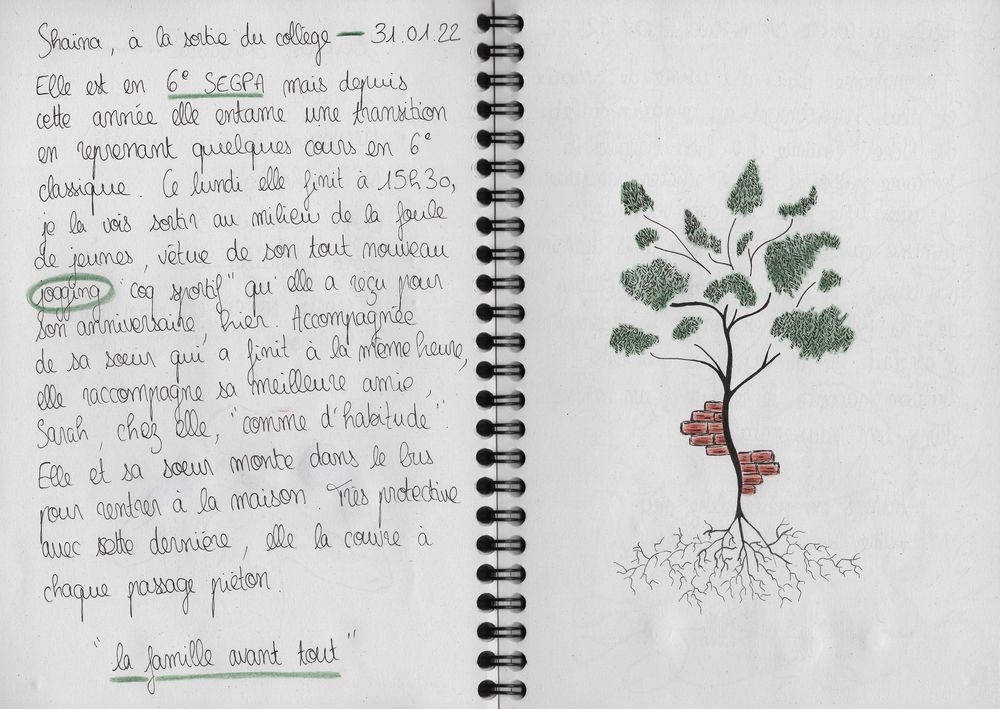 Shaïna, à la sortie du collège — 31.01.22
Elle est en 6e SEGPA mais depuis
cette année elle entame une transition
en reprenant quelques cours en 6e
classique. Ce lundi elle finit à 15h30,
je la vois sortir au milieu de la foule
de jeunes, vêtue de son tout nouveau
jogging "coq sportif" qu'elle a reçu pour
son anniversaire, hier. Accompagnée
de sa soeur qui a finit à la même heure,
elle raccompagne sa meilleure amie,
Sarah, chez elle, "comme d'habitude"
Elle et sa soeur monte dans le bus
pour rentrer à la maison. Très protective
avec sette dernière, elle la couvre à
chaque passage piéton.
"la famille avant tout"